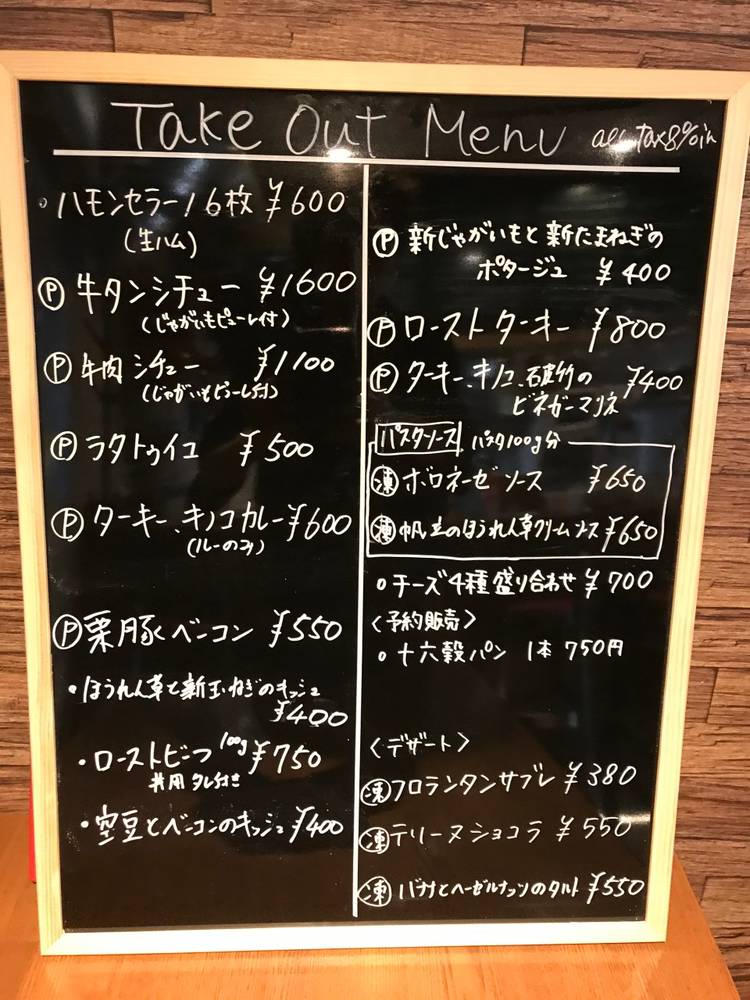 Take Out Menu all tax8%in
・ハモンセラーノ6枚 ¥600
(生ハム)
Ⓟ 牛タンシチュー ¥1600
(じゃがいもピューレ付)
Ⓟ 牛肉シチュー ¥1100
(じゃがいもピューレ付)
Ⓟ ラタトゥイユ ¥500
Ⓟ ターキー、キノコカレー ¥600
(ルーのみ)
Ⓟ 栗豚ベーコン ¥550
・ほうれん草と新玉ねぎのキッシュ
¥400
・ローストビーフ 100g ¥750
丼用タレ付き
・空豆とベーコンのキッシュ ¥400
Ⓟ 新じゃがいもと新たまねぎの
ポタージュ ¥400
Ⓟ ローストターキー ¥800
Ⓟ ターキー、キノコ、の ¥400
ビネガーマリネ
パスタソース パスタ100g分
凍 ボロネーゼソース ¥650
凍 帆立のほうれん草クリームソース ¥650
・チーズ4種盛り合わせ ¥700
<予約販売>
・十六穀パン 1本 750円
<デザート>
凍 フロランタンサブレ ¥380
凍 テリーヌショコラ ¥550
凍 バナナとヘーゼルナッツのタルト ¥550